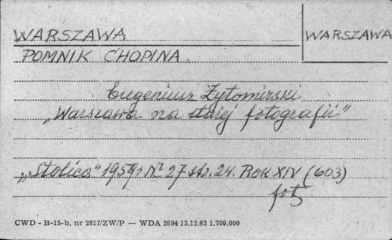 WARSZAWA
WARSZAWA
POMNIK CHOPINA.
Eugeniusz Żytomirski
„Warszawa na starej fotografii"
„Stolica" 1959r Nr 27 str. 24. ROK XIV (603)
fot.
CWD - B-15-b, nr 2827/ZW/P — WDA 2694 13.12.62 1.700.000